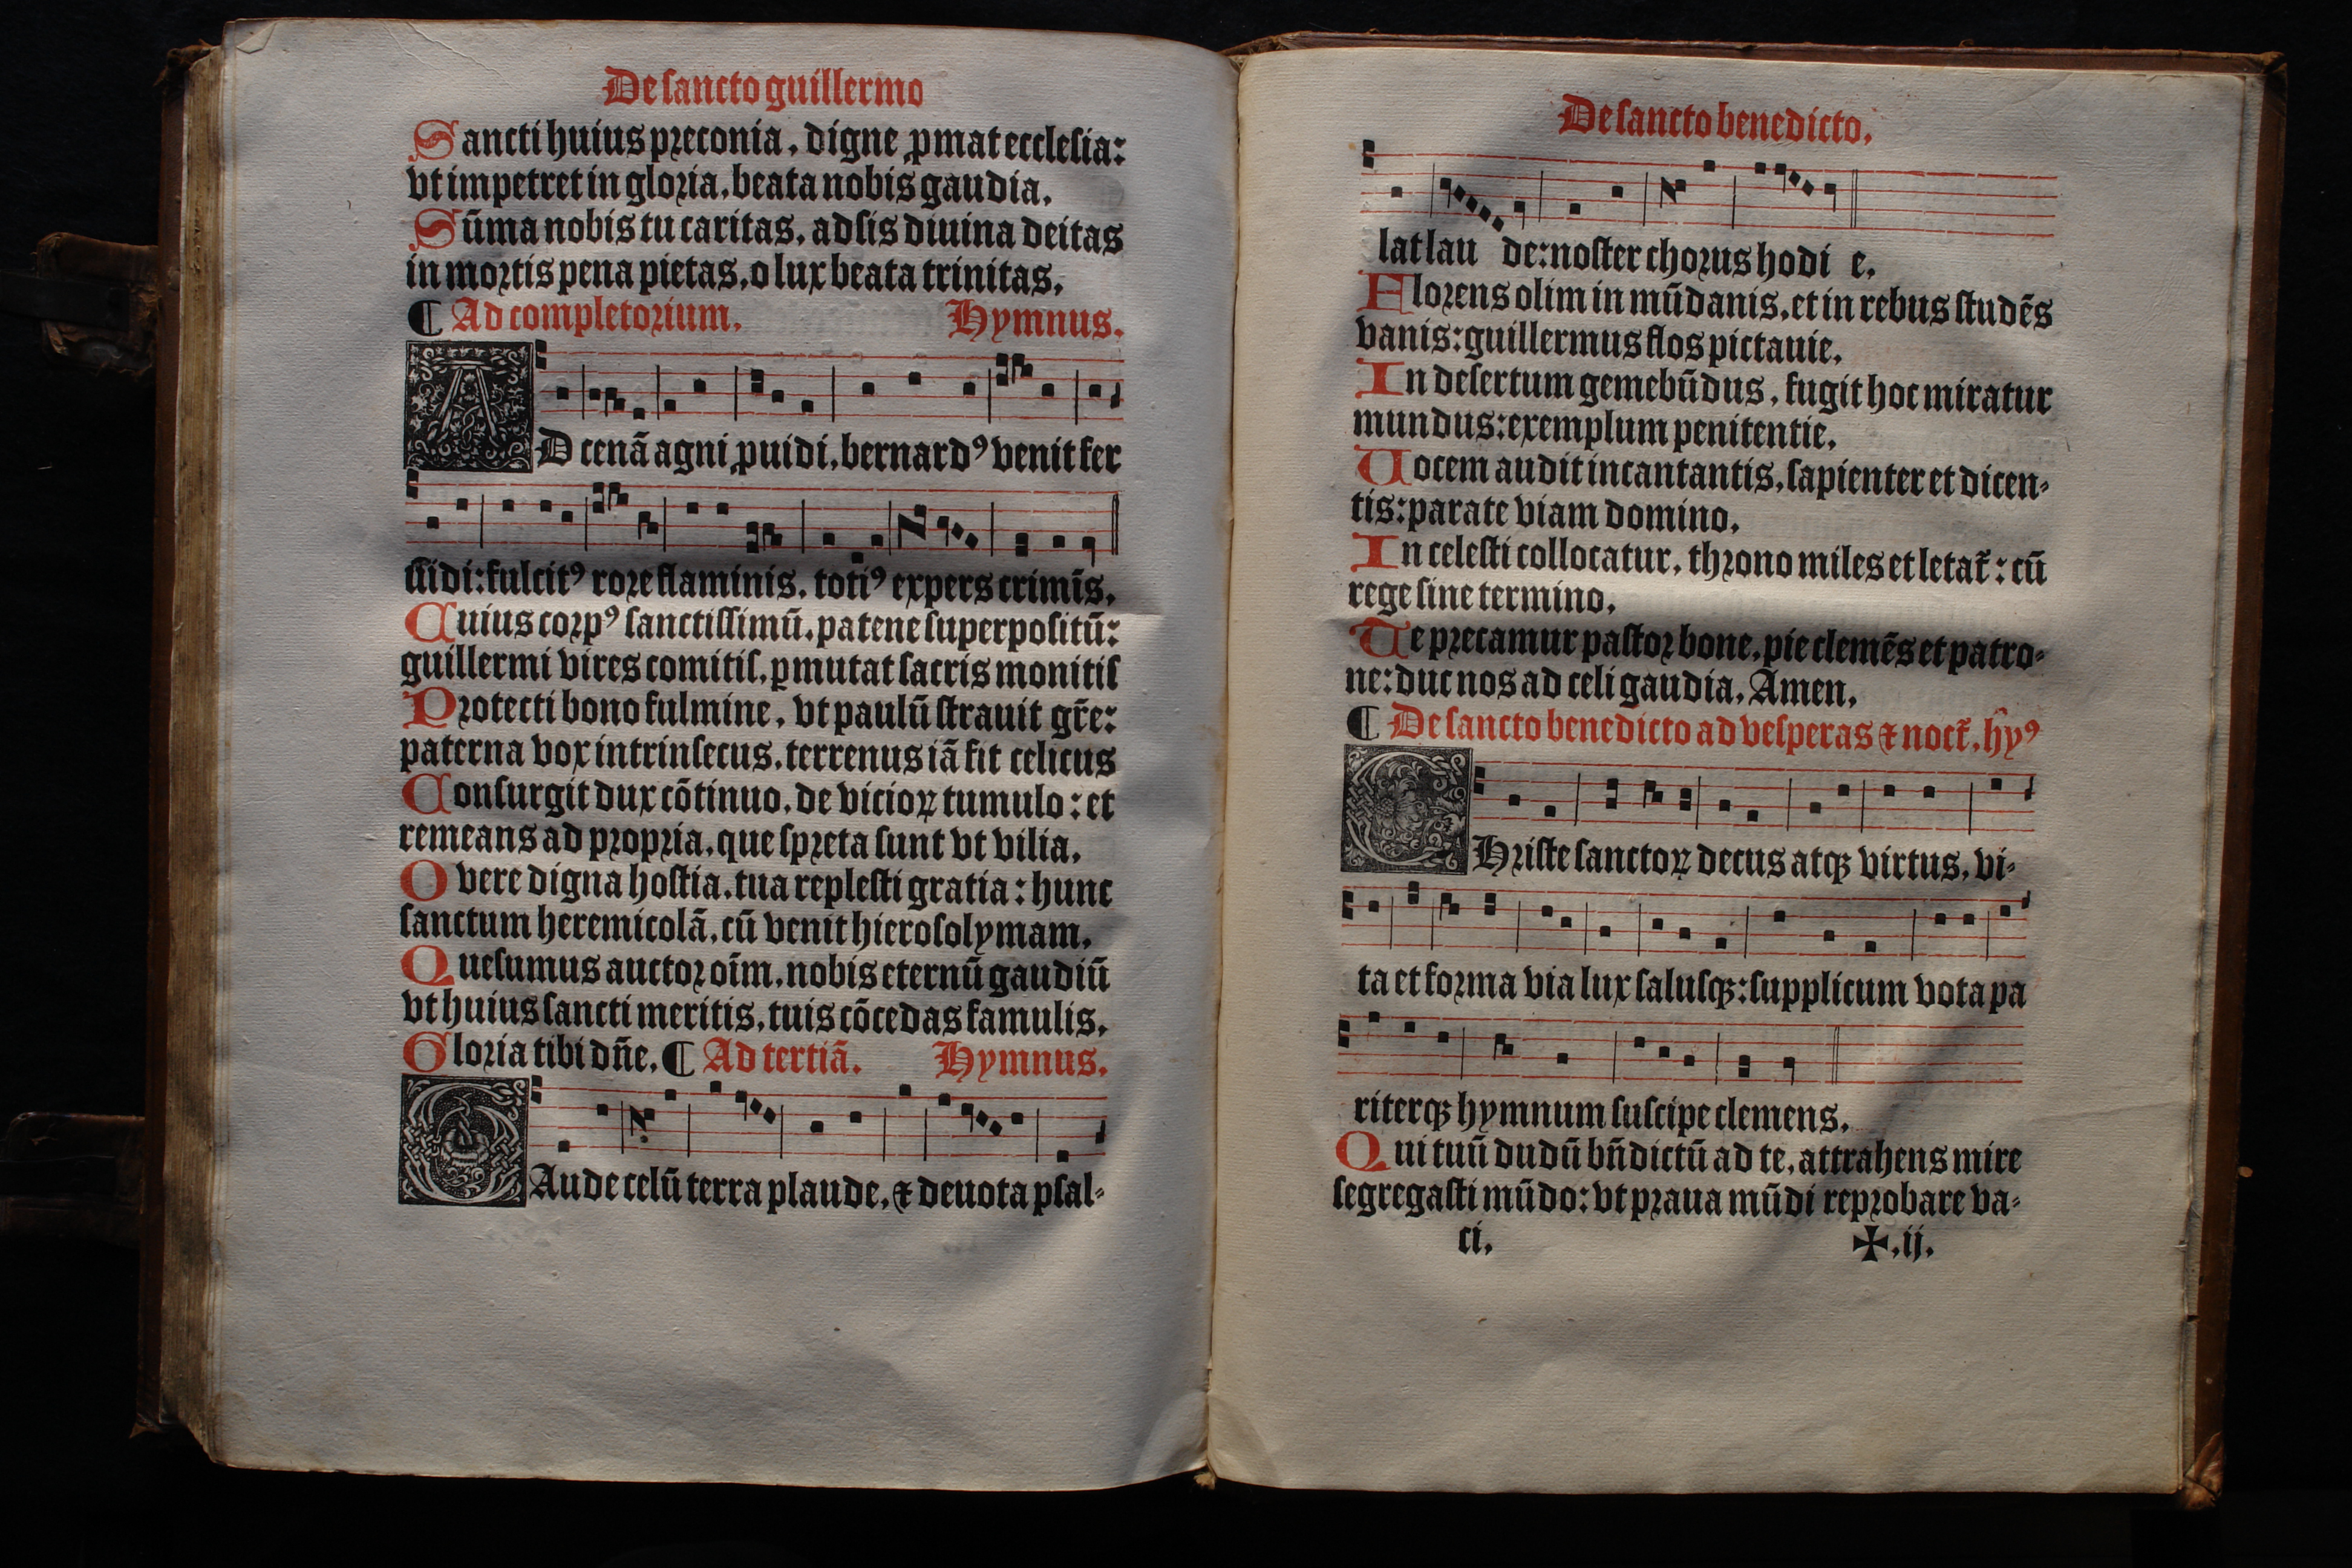 De sancto guillermo
Sancti huius preconia, digne ꝓmat ecclesia:
vt impetret in gloria, beata nobis gaudia.
Sūma nobis tu caritas, adsis diuina deitas
in mortis pena pietas, o lux beata trinitas.
¶ Ad completorium. Hymnus.
AD cenā agni ꝓuidi, bernardꝰ venit fer
uidi: fulcitꝰ rore flaminis, totiꝰ expers crimīs.
Cuius corpꝰ sanctissimū, patene superpositū:
guillermi vires comitis, ꝑmutat sacris monitis
Protecti bono fulmine, vt paulū strauit gr̄e:
paterna vox intrinsecus, terrenus iā fit celicus
Consurgit dux cōtinuo, de vicioꝝ tumulo: et
remeans ad propria, que spreta sunt vt vilia.
O vere digna hostia, tua replesti gratia: hunc
sanctum heremicolā, cū venit hierosolymam.
Quesumus auctor oīm, nobis eternū gaudiū
vt huius sancti meritis, tuis cōcedas famulis.
Gloria tibi dn̄e. ¶ Ad tertiā. Hymnus.
GAude celū terra plaude, ⁊ deuota psal-
De sancto benedicto.
lat lau de: noster chorus hodi e.
Florens olim in mūdanis, et in rebus studēs
vanis: guillermus flos pictauie.
In desertum gemebūdus, fugit hoc miratur
mundus: exemplum penitentie.
Uocem audit incantantis, sapienter et dicen-
tis: parate viam domino.
In celesti collocatur, throno miles et letat̄: cū
rege sine termino.
Te precamur pastor bone, pie clemēs et patro-
ne: duc nos ad celi gaudia. Amen.
¶ De sancto benedicto ad vesperas ⁊ noct̄. hȳꝰ
CHriste sanctoꝝ decus atqꝫ virtus, vi-
ta et forma via lux salusqꝫ: supplicum vota pa
riterqꝫ hymnum suscipe clemens.
Qui tuū dudū bn̄dictū ad te, attrahens mire
segregasti mūdo: vt praua mūdi reprobare va-
ci. ✠.ij.